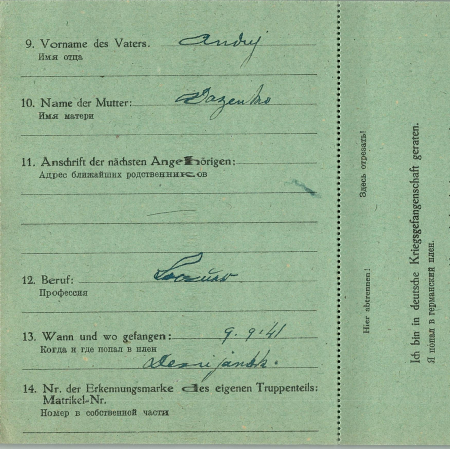 9. Vorname des Vaters. Andrej
Имя отца
10. Name der Mutter:
Имя матери
11. Anschrift der nächsten Angehörigen:
Адрес ближайших родственников
12. Beruf:
Профессия
13. Wann und wo gefangen: 9.9.41
Когда и где попал в плен
14. Nr. der Erkennungsmarke des eigenen Truppenteils:
Matrikel-Nr.
Номер в собственной части
Hier abtrennen! Здесь отрезать!
Ich bin in deutsche Kriegsgefangenschaft geraten.
Я попал в германский плен.